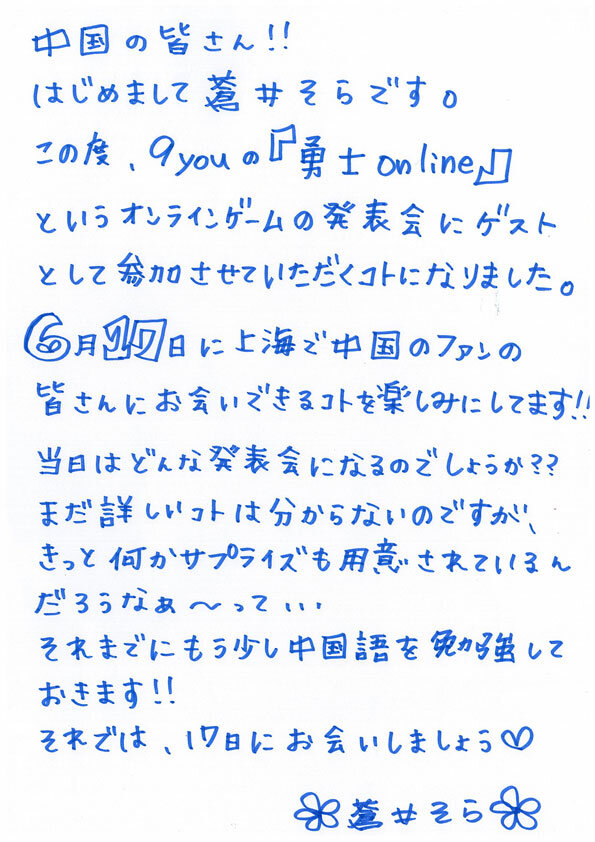 中国の皆さん!!
はじめまして蒼井そらです。
この度、9youの『勇士online』
というオンラインゲームの発表会にゲスト
として参加させていただくコトになりました。
6月17日に上海で中国のファンの
皆さんにお会いできるコトを楽しみにしてます!!
当日はどんな発表会になるのでしょうか??
まだ詳しいコトは分からないのですが、
きっと何かサプライズも用意されているん
だろうなぁ〜って...
それまでにもう少し中国語を勉強して
おきます!!
それでは、17日にお会いしましょう♡
蒼井そら